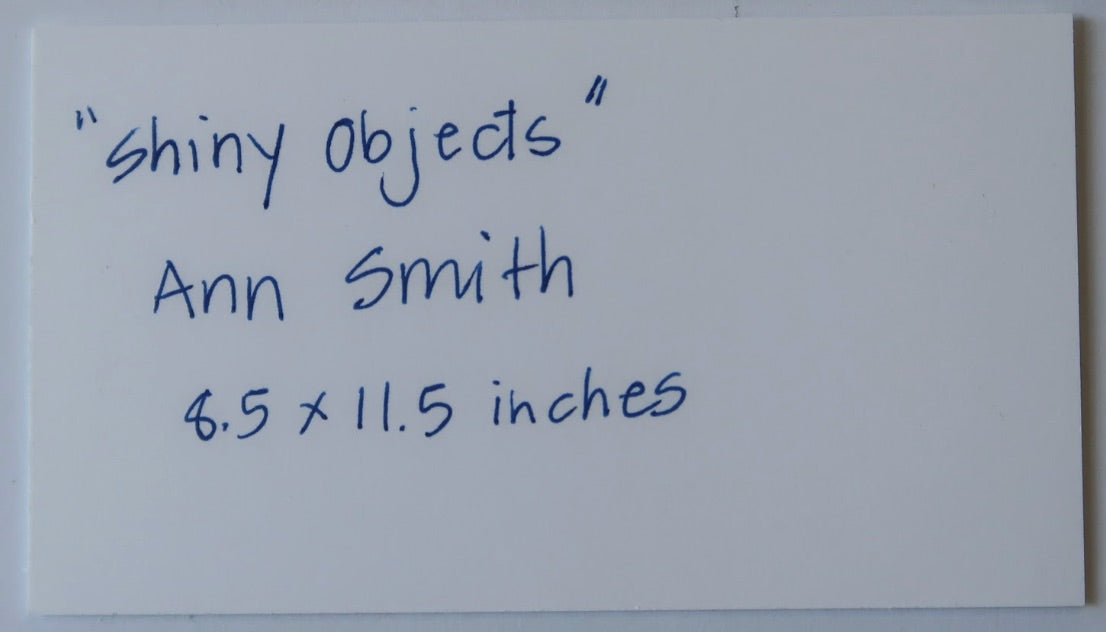 "Shiny Objects"
Ann Smith
8.5 x 11.5 inches